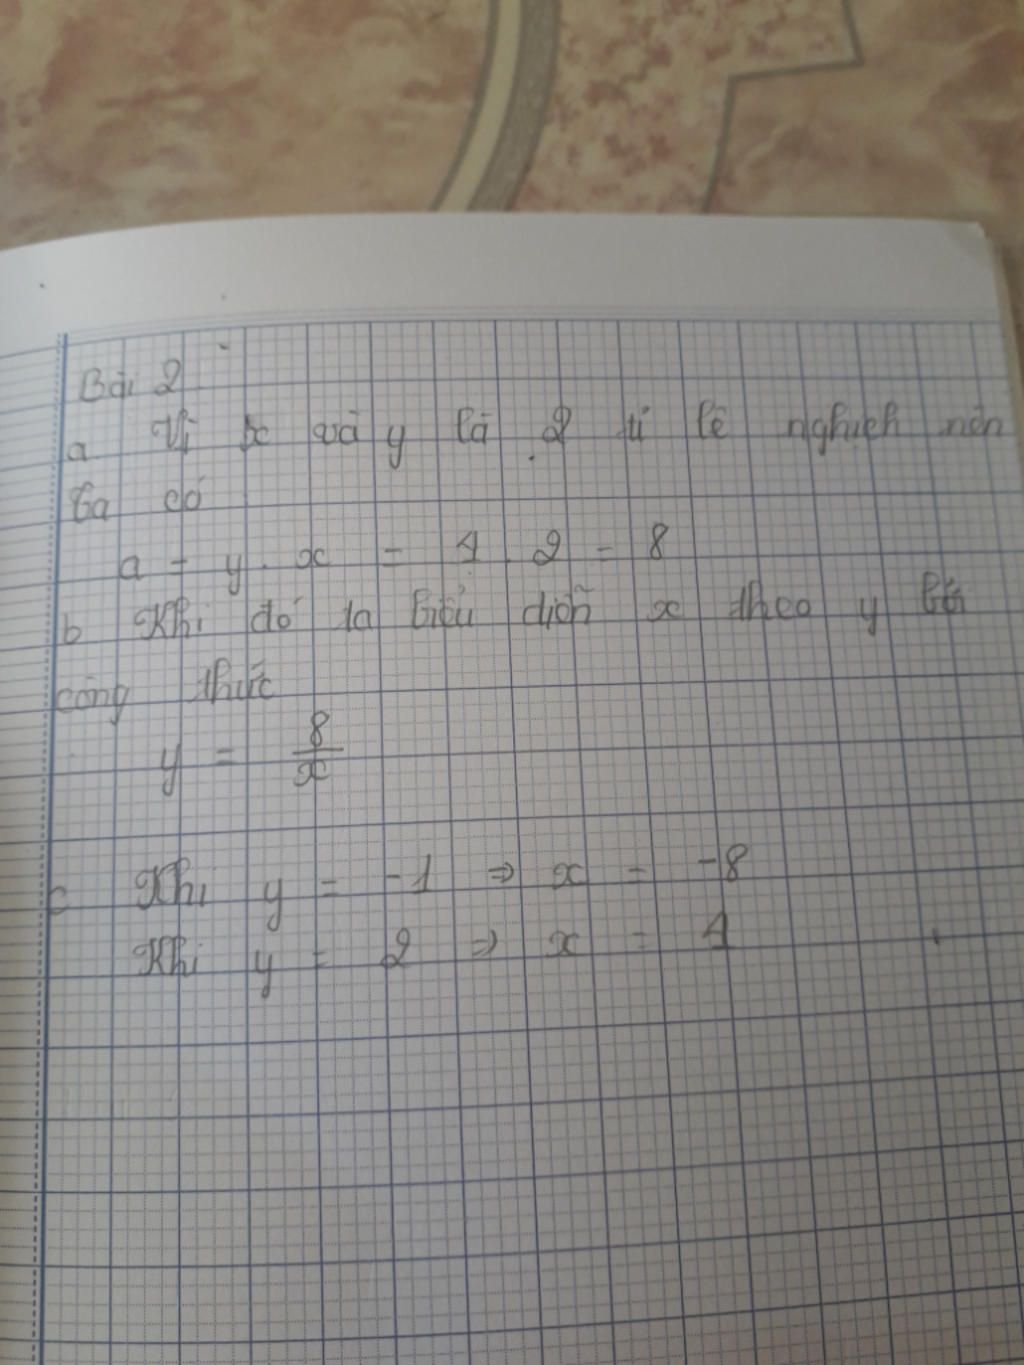 Bài 2
a Vì x và y là 2 tỉ lê nghịch nên
ta có
a = y . x = 4 . 2 = 8
b Khi đó ta biểu diễn x theo y bởi
công thức
y = 8/x
c Khi y = -1 ⇒ x = -8
Khi y = 2 ⇒ x = 4